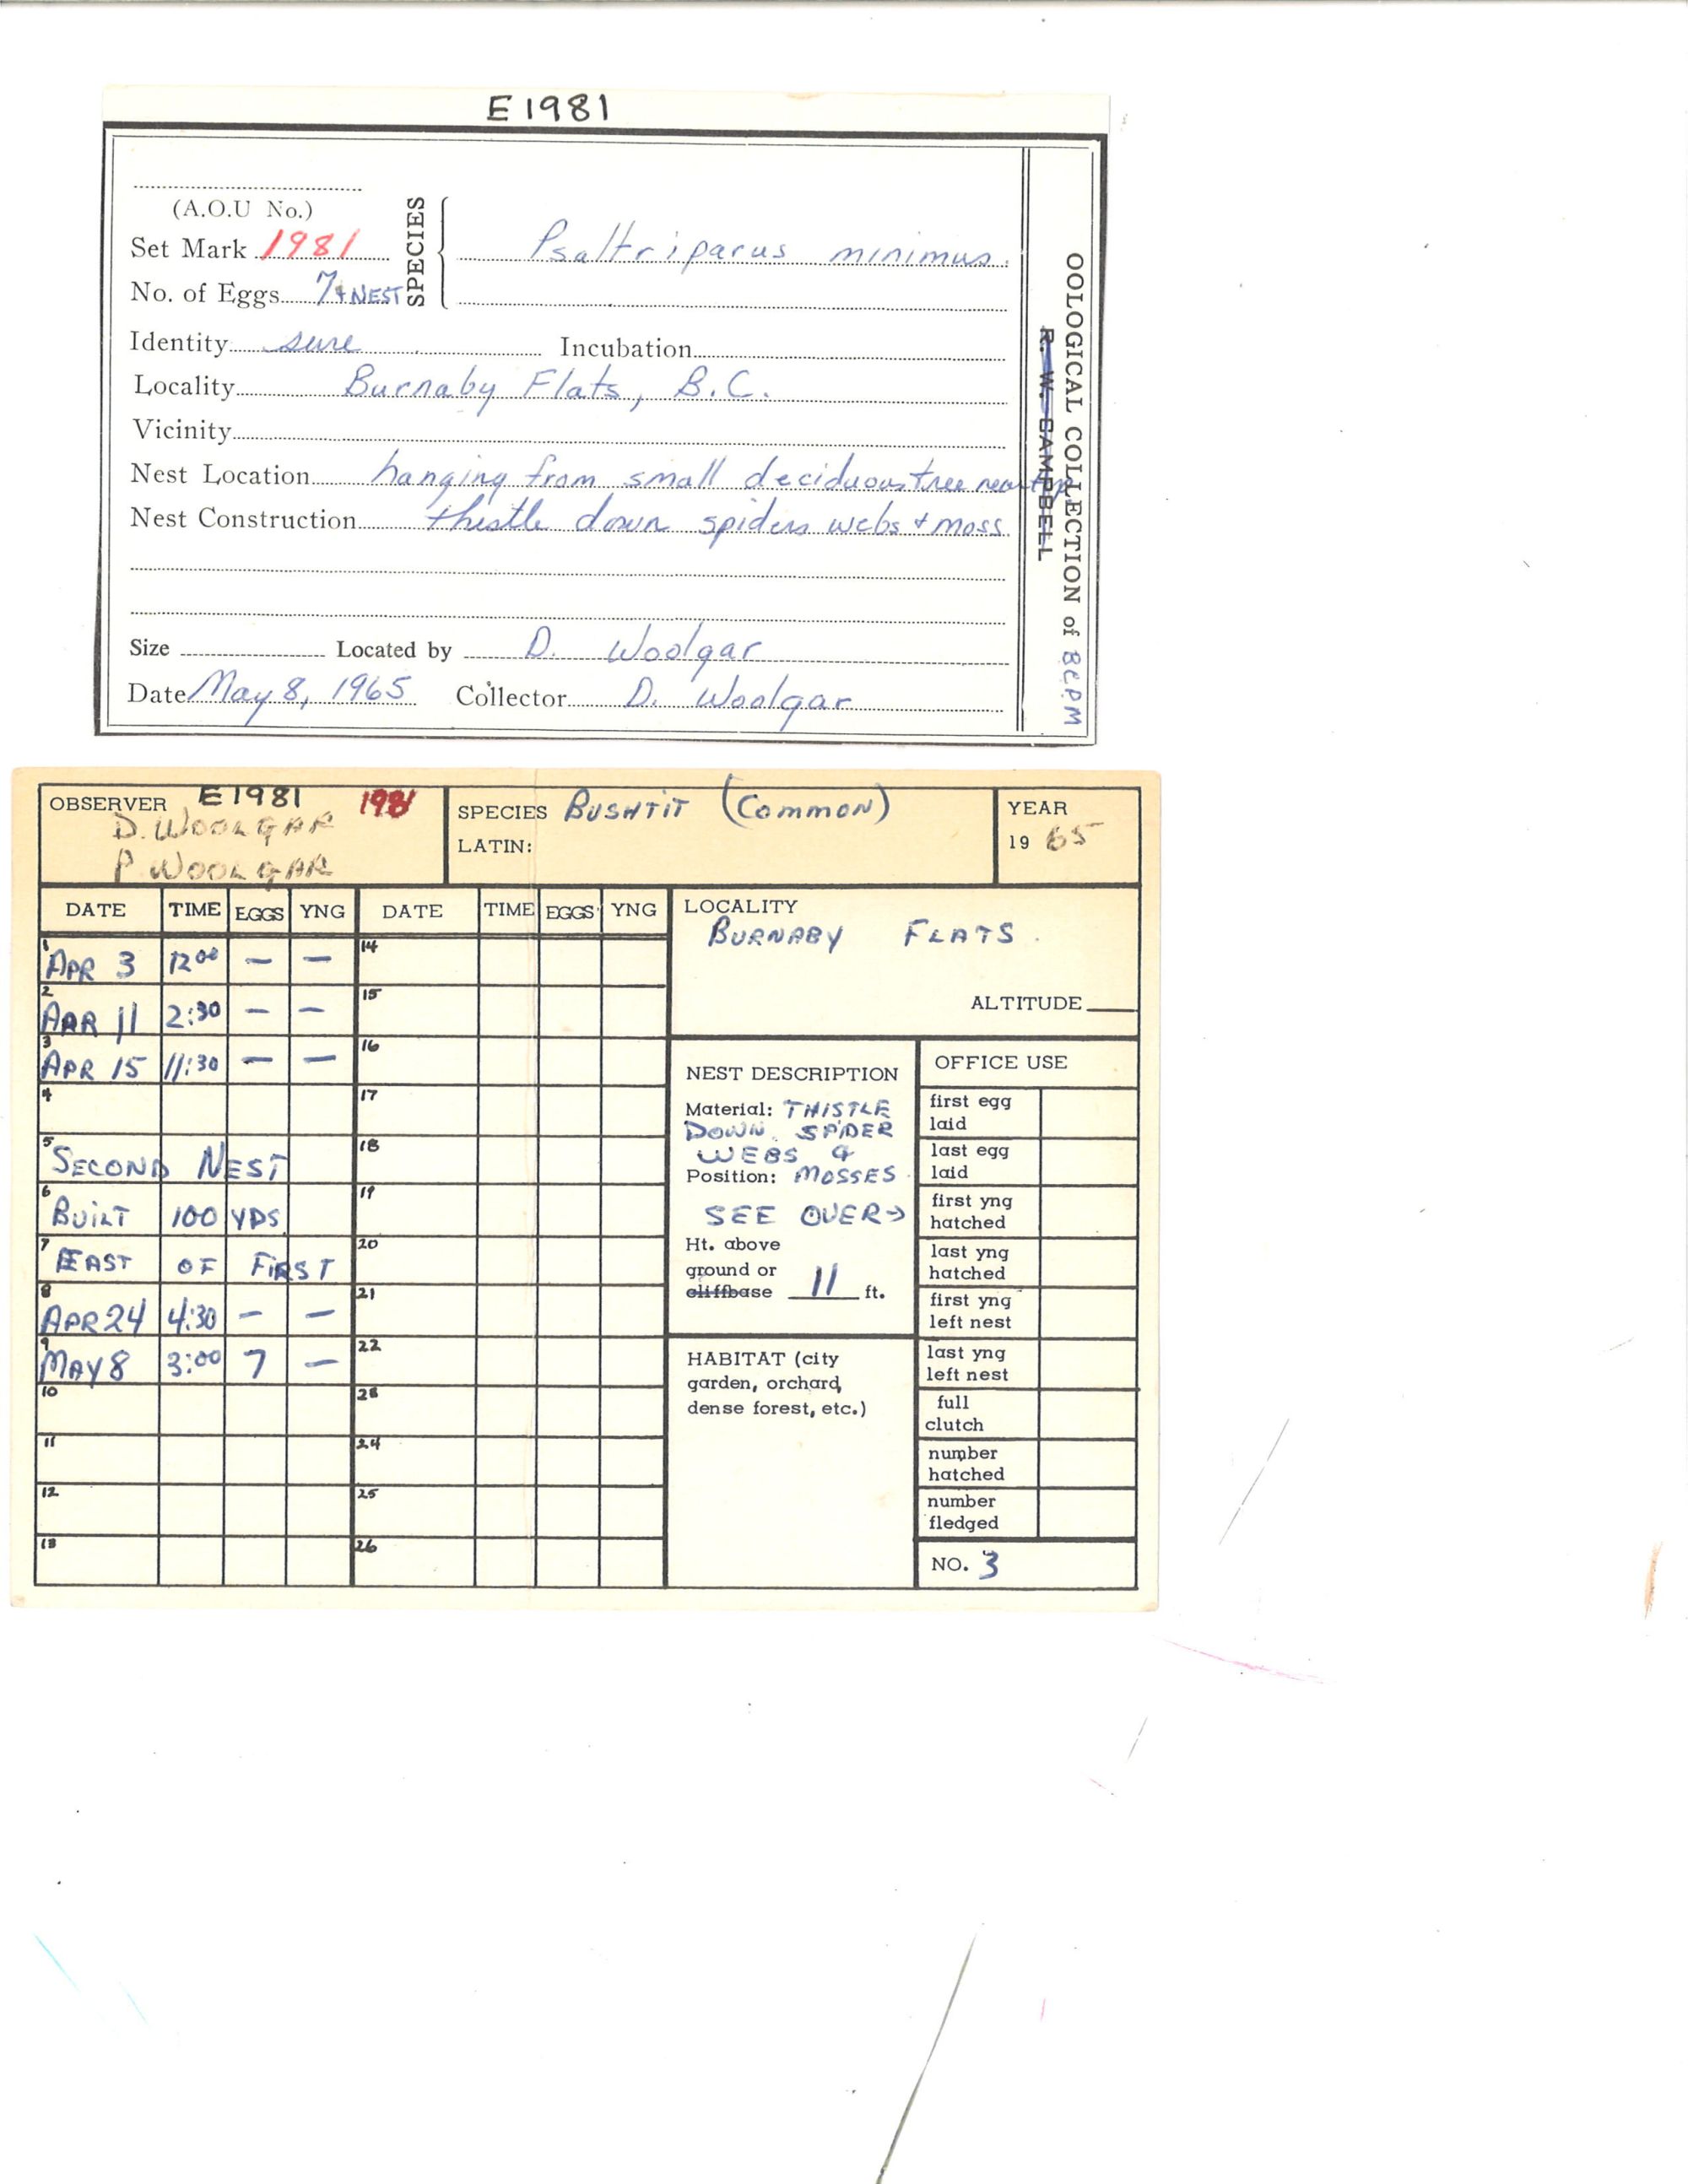 E1981
(A.O.U No.)
Set Mark 1981
No. of Eggs 7 + NEST
SPECIES
Psaltriparus minimus.
Identity sure Incubation
Locality Burnaby Flats, B.C.
Vicinity
Nest Location hanging from small deciduous tree near top
Nest Construction thistle down spiders webs + moss.
Size Located by D. Woolgar
Date May 8, 1965 Collector D. Woolgar
OOLOGICAL COLLECTION of BCPM
R. W. CAMPBELL
OBSERVER E1981 1981
D. WOOLGAR
P. WOOLGAR
SPECIES BUSHTIT (COMMON)
LATIN:
YEAR
19 65
DATE TIME EGGS YNG DATE TIME EGGS YNG
1 APR 3 12 00 — — 14
2 APR 11 2:30 — — 15
3 APR 15 11:30 — — 16
4 17
5 SECOND NEST 18
6 BUILT 100 YDS 19
7 EAST OF FIRST 20
8 APR 24 4:30 — — 21
9 MAY 8 3:00 7 — 22
10 23
11 24
12 25
13 26
LOCALITY
BURNABY FLATS.
ALTITUDE
NEST DESCRIPTION
Material: THISTLE
DOWN, SPIDER
WEBS &
Position: MOSSES
SEE OVER →
Ht. above
ground or
cliffbase 11 ft.
HABITAT (city
garden, orchard,
dense forest, etc.)
OFFICE USE
first egg
laid
last egg
laid
first yng
hatched
last yng
hatched
first yng
left nest
last yng
left nest
full
clutch
number
hatched
number
fledged
NO. 3